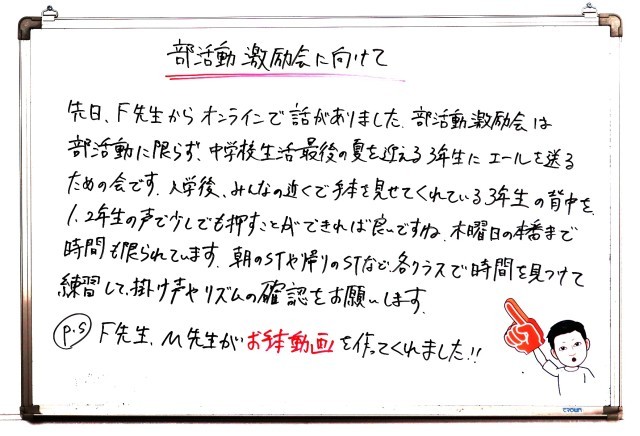 部活動 激励会に向けて
先日、F先生からオンラインで話がありました。部活動激励会は
部活動に限らず、中学校生活最後の夏を迎える3年生にエールを送る
ための会です。入学後、みんなの近くで手本を見せてくれている3年生の背中を、
1、2年生の声で少しでも押すことができれば良いですね。木曜日の本番まで
時間も限られています。朝のSTや帰りのSTなど、各クラスで時間を見つけて
練習して、掛け声やリズムの確認をお願いします。
P.S F先生、M先生がお手本動画を作ってくれました!!
CROWN